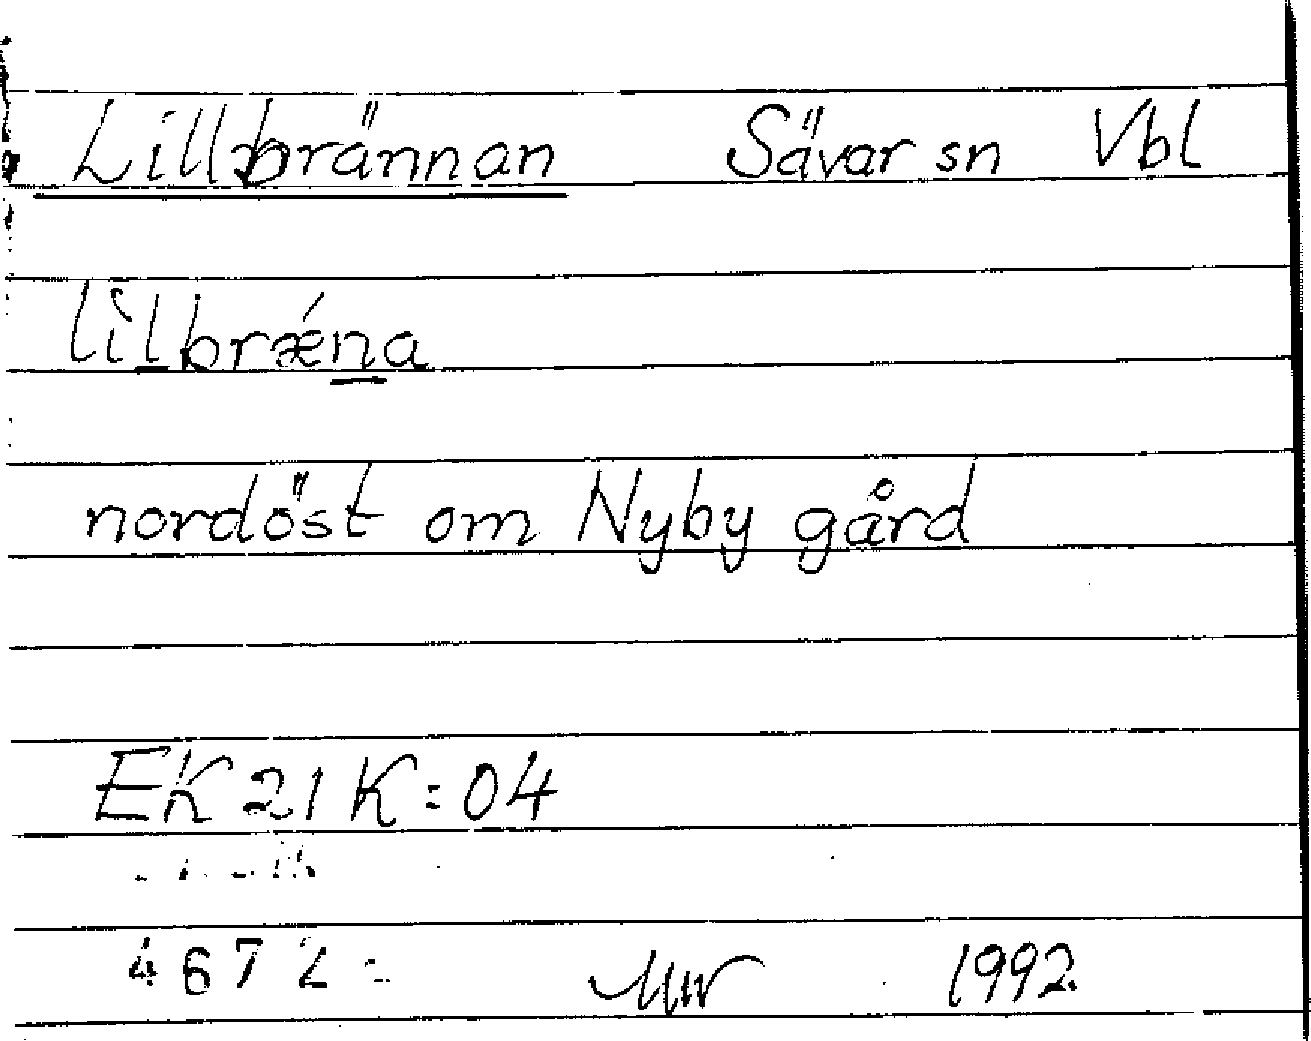 Lillbrännan Sävar sn Vbl
lìlbrǽna
nordöst om Nyby gård
EK 21 K:04
1992